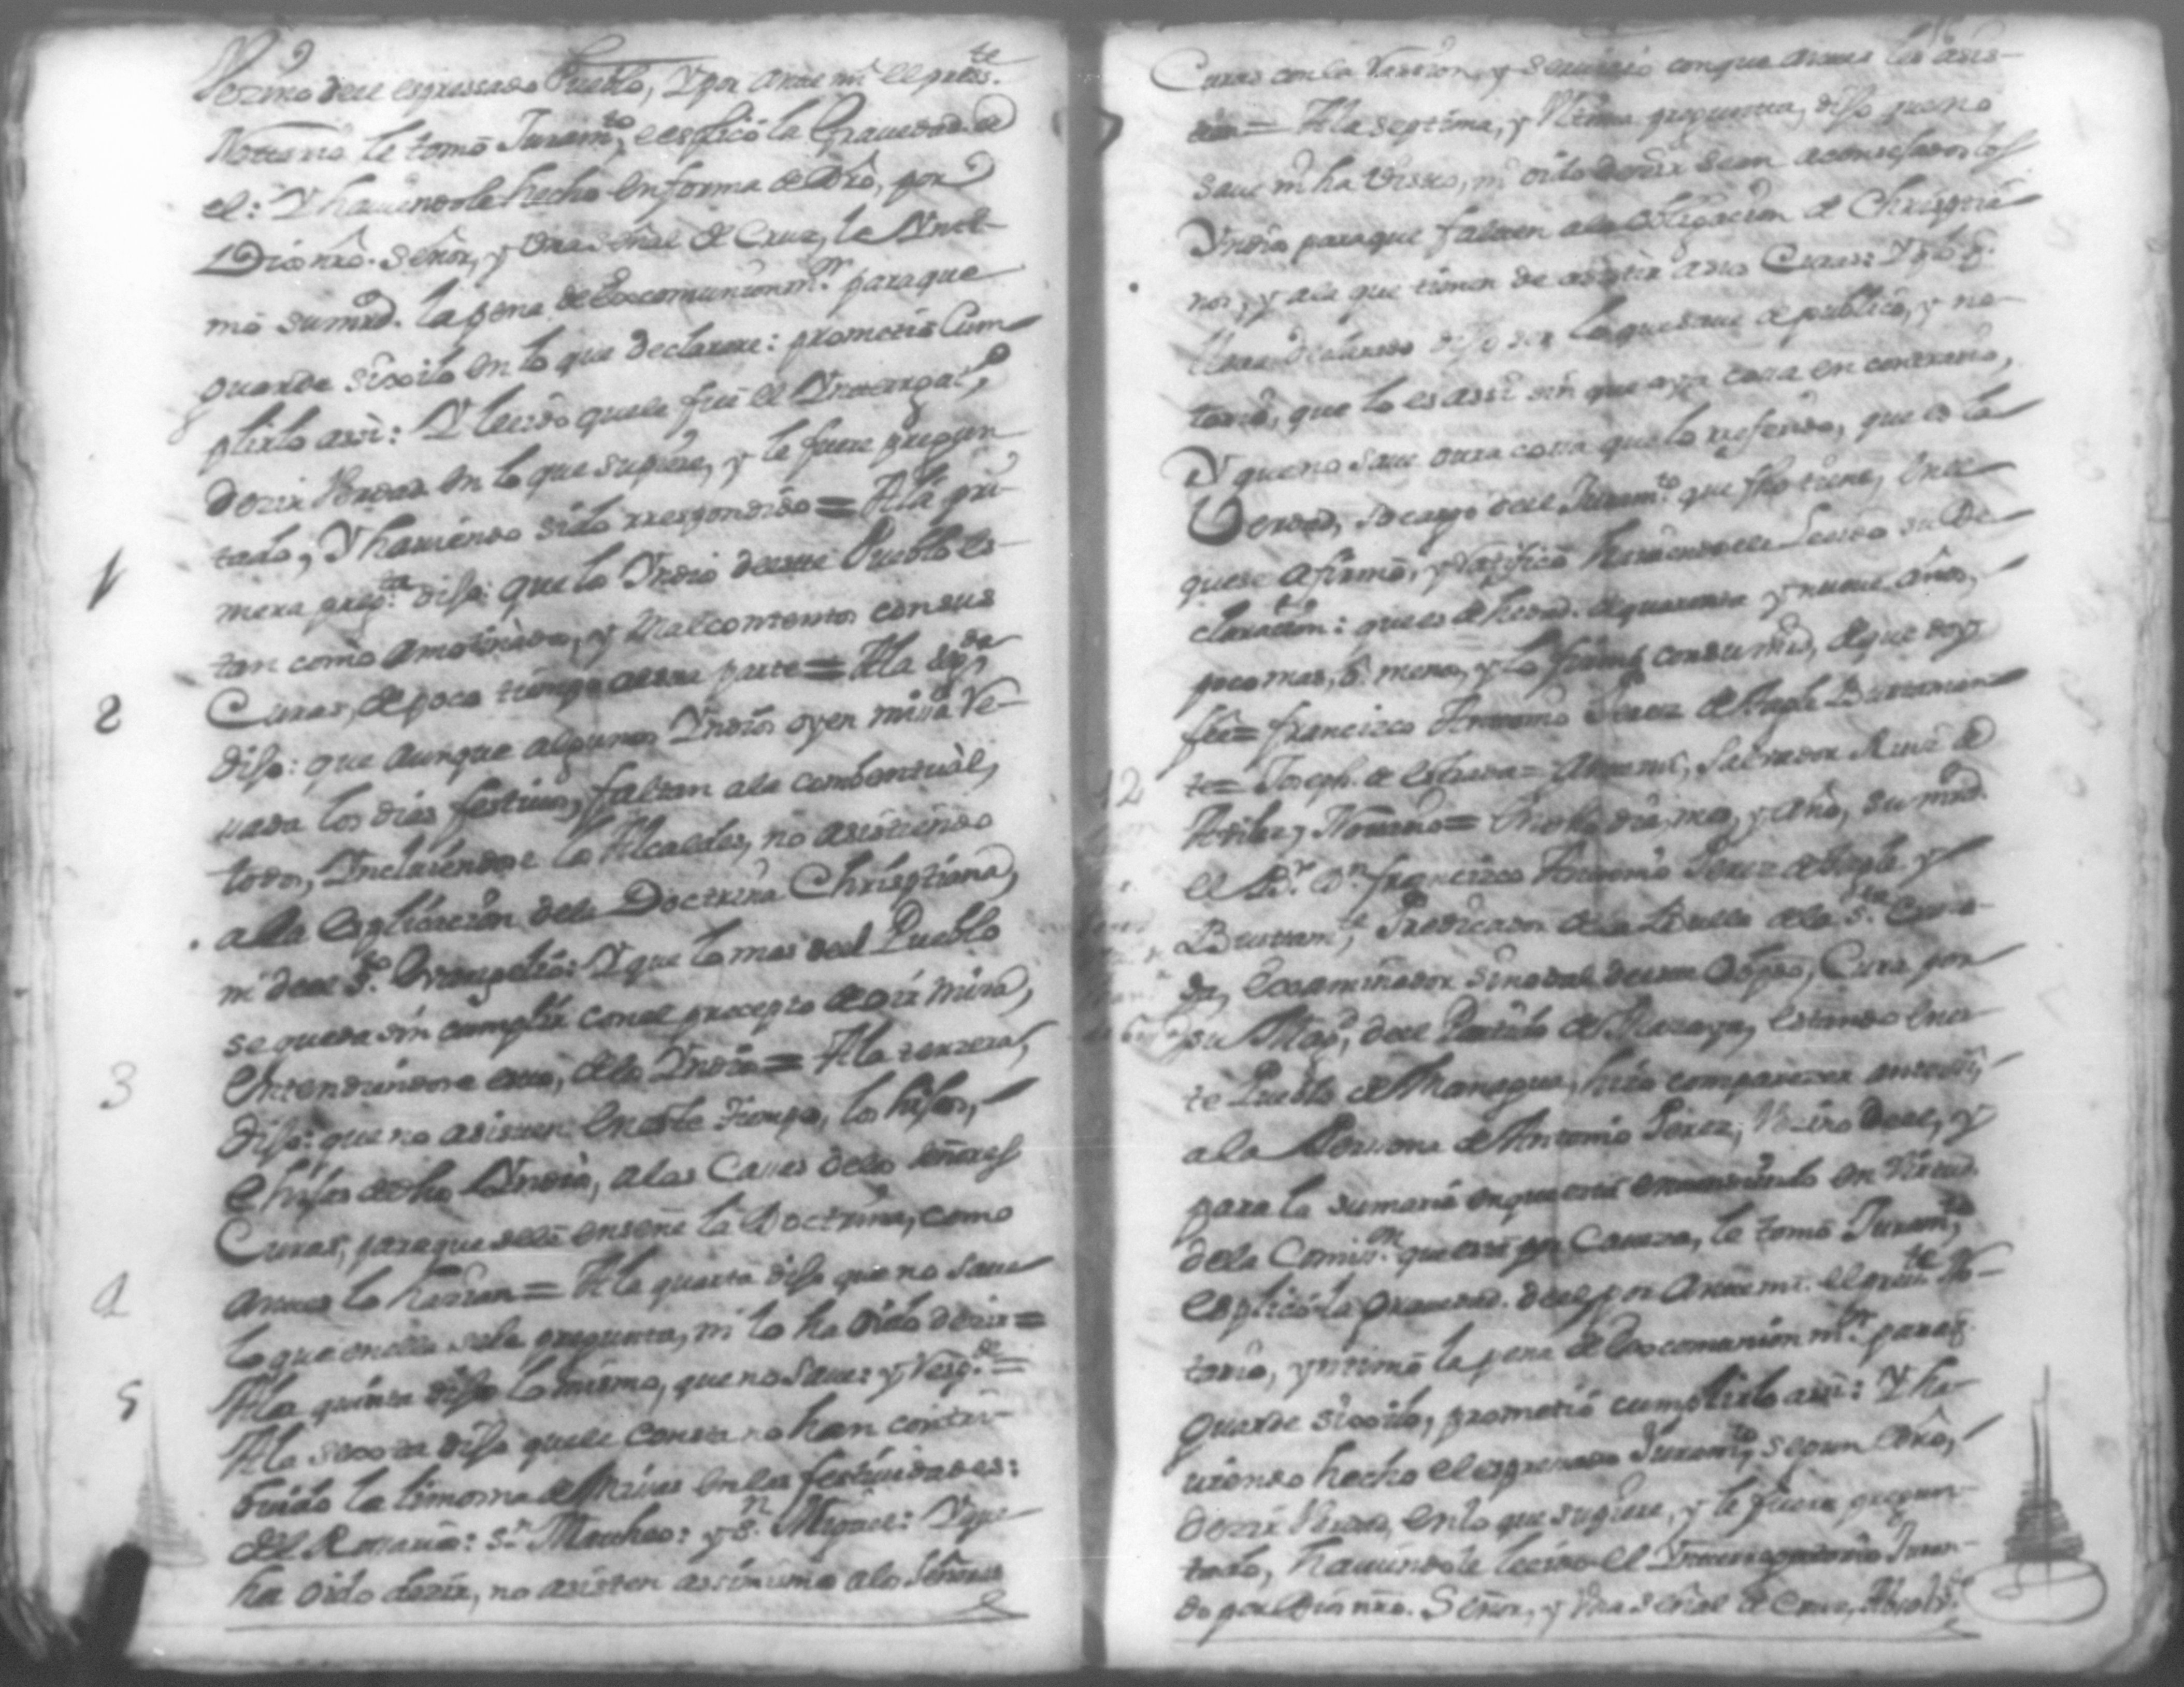 Vezino deel expressado Pueblo, Y por ante mi el press.te
Nottario le tomó Juram.to, e esplicó la Gravedad de
el: Y haviendole hecho en forma de dro, por
Dios nro. Señor, y una señal de Cruz, le Ynti-
mó su mrd. la pena de Excomunion m.or paraque
guarde sixilo en lo que declarare: prometió Cum
plirlo assi: Y leido quele fue el Ynterrogat.o
dezir Verdad en lo que supiere, y le fuere pregun
tado, Y haviendo sido rrespondido = A la pri-
1 mera preg.ta dijo: que lo Yndio deeste Pueblo es-
tan como amotinados, y Malcontentos con sus
2 Curas, de poco tiempo a esta parte = A la seg.da
dijo: que aunque algunos Yndios oyen missa re-
zada los dias festivos, faltan a la combentual,
todos, Yncluiendose lo Alcaldes, no asistiendo
a la explicacion dela Doctrina Christiana,
ni deel S.to Evangelio: Y que lo mas deel Pueblo
se queda sin cumplir con el precepto de oir missa,
3 entendiendose esto, delo Yndio = A la terzera,
dijo: que no asisten en este tiempo, lo hijos,
e hijas de dho Yndio, a las Casas delo señores
Curas, paraque seles enseñe la Doctrina, como
4 antes lo hazian = A la quarta dijo que no save
lo que en ella sele pregunta, ni lo ha oido dezir =
5 A la quinta dijo lo mismo, que no save: y resp.de =
A la sexta dijo quele consta no han contri-
buido la limosna de Missas en las festividades:
del Rossario: S.n Matheo: y S.n Miguel: Y que
ha oido dezir, no asisten assimismo alo Señores
Curas con la racion, y servicio conque antes los asis-
tian = A la septima, y Ultima pregunta, dijo que no
save ni ha visto, ni oido dezir sean aconsejados los
Yndio paraque falten a la obligacion de Christia
nos, y ala que tienen de asistir a sus Curas: Y q.
lleva declarado dijo ser lo que save de publico, y no-
torio, que lo es assi sin que aya cossa en contrario,
Y que no save otra cossa que lo rreferido, que es la
Verdad, so cargo deel Juram.to que fho tiene, en el
que se afirmó, y ratificó haviendole leido su De
claracion: que es de hedad de quarenta y nueve años,
poco mas, ó menos, y lo firmó con su mrd, de que doy
fée = Francisco Antonio Perez de Bustaman
te = Joseph de Estrada = Ante mi, Salvador Ruiz de
Aviles, Nottario = En dho dia, mes, y año, su mrd.
el D.n Francisco Antonio Perez de y
Bustam.te, Predicador de la Bulla dela S.ta Cruza-
da, Examinador Sinodal deeste Obpdo, Cura por
su Mag.d deel Partido de Masaya, estando en es-
te Pueblo de Managua, hizo comparezer ante si,
a la Perssona de Antonio Perez, Vezino deel, y
para la sumaria en que está entendiendo en Virtud
dela Comiss.on que está por Caveza, le tomó Juram.to,
Explicó la gravedad deel por ante mi el press.te No-
tario, yntimó la pena de Excomunion m.or paraq.
guarde sixilo, prometió cumplirlo assi: Y ha-
viendo hecho el expressado Juram.to, segun dro,
dezir Verdad, en lo que supiere, y le fuere pregun-
tado, haviendole leido el Ynterrogatorio Juran-
do por Dios nro. Señor, y una señal de Cruz,